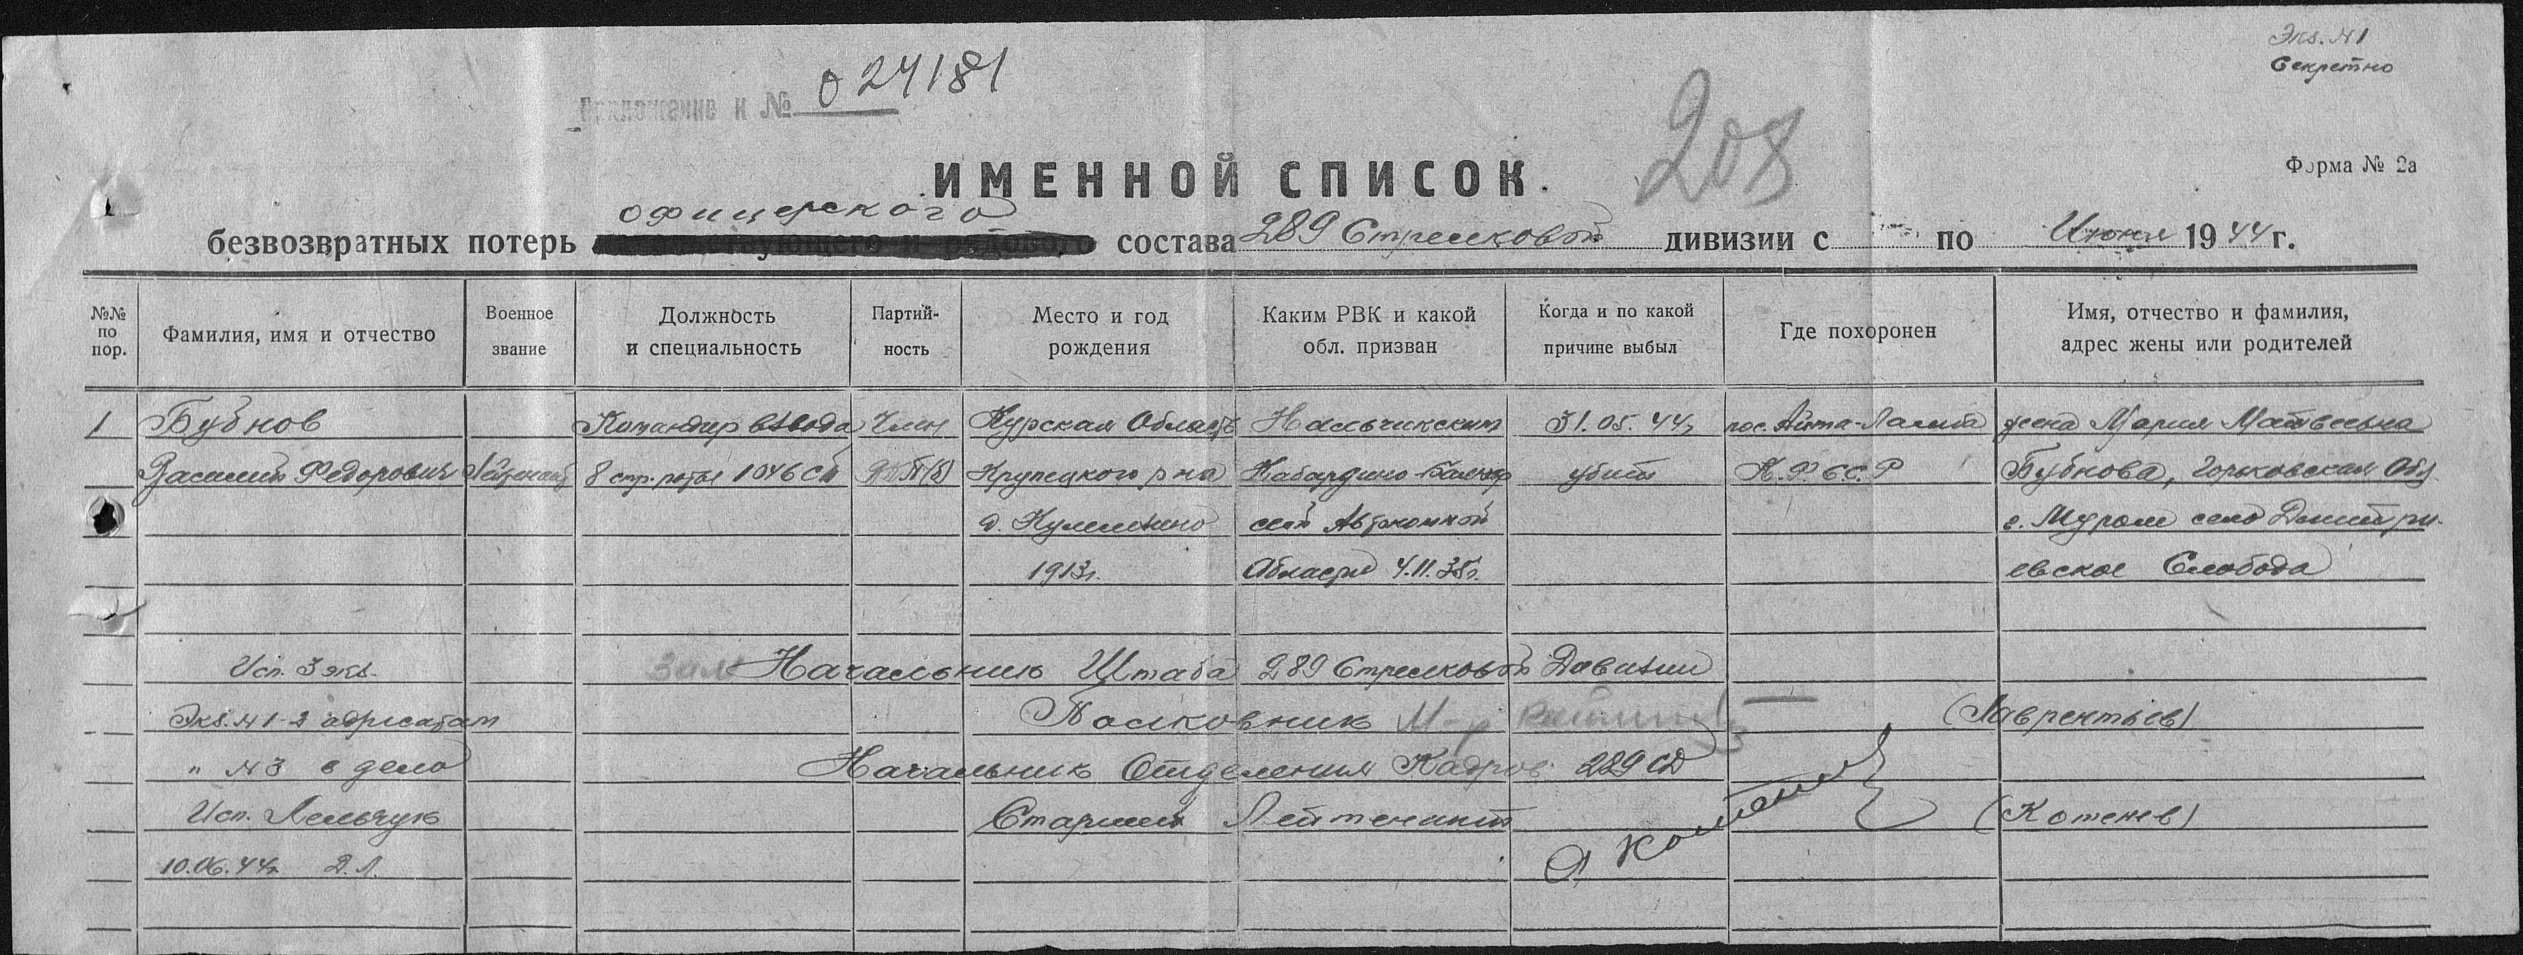 Экз. №1
Секретно
024181
Приложение к №
208
Форма № 2а
ИМЕННОЙ СПИСОК
офицерского
безвозвратных потерь состава 289 Стрелковой дивизии с по Июня 1944 г.
№№ по пор.
Фамилия, имя и отчество
Военное звание
Должность и специальность
Партийность
Место и год рождения
Каким РВК и какой обл. призван
Когда и по какой причине выбыл
Где похоронен
Имя, отчество и фамилия, адрес жены или родителей
1 Бубнов Командир взвода Член Курская Область Нальчикским 31.05.44г пос. Айта-Ламба жена Мария Матвеевна
Василий Федорович Лейтенант 8 стр. роты 1046 СП ВКП(б) Крупецкого р-на Кабардино-Балкар убит К.Ф.С.С.Р Бубнова, Горьковская Обл.
д. ской Автономной г. Муром село Дмитри-
1913г. Области 4.11.35г. евское Слобода
Исп. 3 экз. Зам Начальник Штаба 289 Стрелковой Дивизии
Экз. №1-2 адресатам Полковник М-р (Лаврентьев)
" №3 в дело Начальник Отделения Кадров 289 СД
Исп. Лельчук Старший Лейтенант (Котенев)
10.06.44г Д.Л.